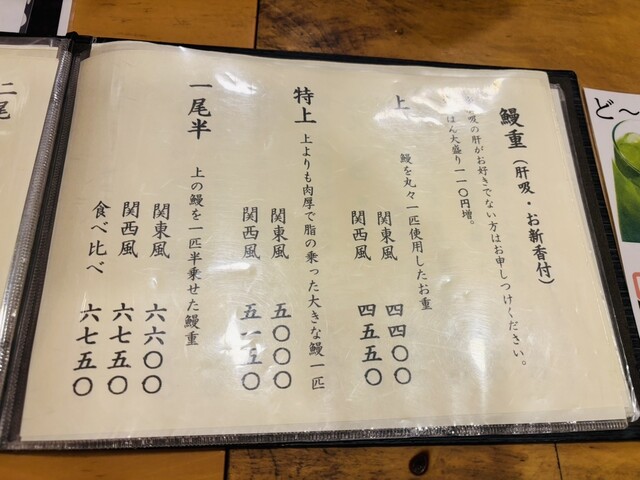 鰻重（肝吸・お新香付）
吸の肝がお好きでない方はお申しつけください。
はん大盛り一一〇円増。
上
鰻を丸々一匹使用したお重
関東風 四四〇〇
関西風 四五五〇
特上
上よりも肉厚で脂の乗った大きな鰻一匹
関東風 五〇〇〇
関西風 五一五〇
一尾半
上の鰻を一匹半乗せた鰻重
関東風 六六〇〇
関西風 六七五〇
食べ比べ 六七五〇
二尾
ど〜